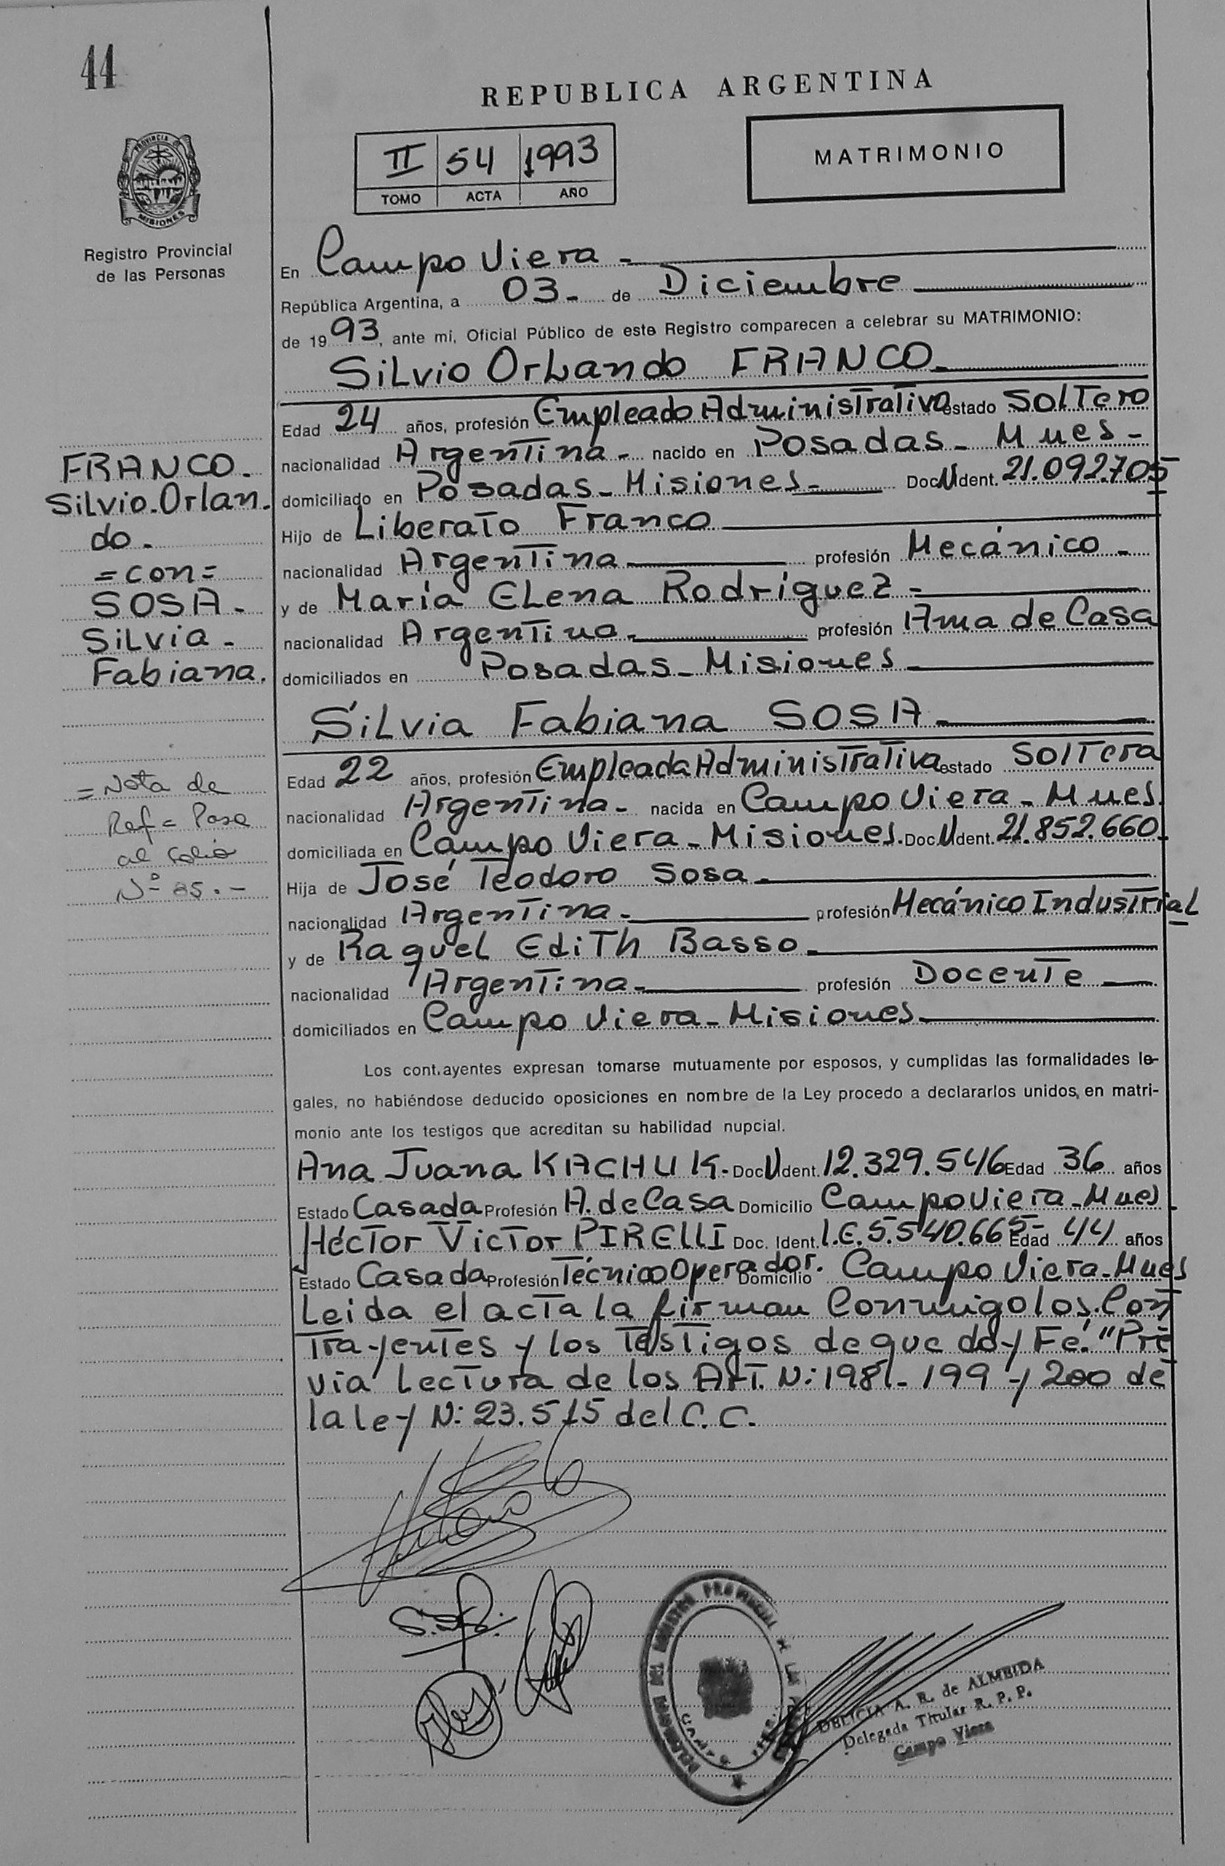 44
REPUBLICA ARGENTINA
II 54 1993
TOMO ACTA AÑO
MATRIMONIO
PROVINCIA DE
MISIONES
Registro Provincial
de las Personas
En Campo Viera -
República Argentina, a 03- de Diciembre
de 1993, ante mi, Oficial Público de este Registro comparecen a celebrar su MATRIMONIO:
Silvio Orlando FRANCO-
Edad 24 años, profesión Empleado Administrativo estado Soltero
nacionalidad Argentina- nacido en Posadas- Mnes-
domiciliado en Posadas-Misiones- Doc U Ident. 21.092.705
Hijo de Liberato Franco
nacionalidad Argentina profesión Mecánico-
y de María Elena Rodríguez-
nacionalidad Argentina- profesión Ama de Casa
domiciliados en Posadas-Misiones
FRANCO-
Silvio-Orlan-
do-
=con=
SOSA-
Silvia-
Fabiana.
Silvia Fabiana SOSA-
Edad 22 años, profesión Empleada Administrativa estado Soltera
nacionalidad Argentina- nacida en Campo Viera-Mnes
domiciliada en Campo Viera-Misiones. Doc U Ident. 21.852.660
Hija de José Teodoro Sosa-
nacionalidad Argentina- profesión Mecánico Industrial
y de Raquel Edith Basso
nacionalidad Argentina- profesión Docente
domiciliados en Campo Viera-Misiones
=Nota de
Ref= Pasa
al folio
Nº 85.-
Los cont.ayentes expresan tomarse mutuamente por esposos, y cumplidas las formalidades le-
gales, no habiéndose deducido oposiciones en nombre de la Ley procedo a declararlos unidos, en matri-
monio ante los testigos que acreditan su habilidad nupcial.
Ana Juana KACHUK- Doc U Ident. 12.329.546 Edad 36 años
Estado Casada Profesión A. de Casa Domicilio Campo Viera-Mnes
Héctor Victor PIRELLI Doc. Ident. L.E. 5.540.665- Edad 44 años
Estado Casada Profesión Técnico Operador. Domicilio Campo Viera-Mnes
Leida el acta la firman Conmigo los Con
Trayentes y los Testigos de que doy Fe." Pre
via Lectura de los ArT. N: 198- 199 y 200 de
la ley N: 23.515 del C.C.
DELEGACION DEL REGISTRO PROVINCIAL DE LAS
CAMPO VIERA
DELICIA A. R. de ALMEIDA
Delegada Titular R. P. P.
Campo Viera